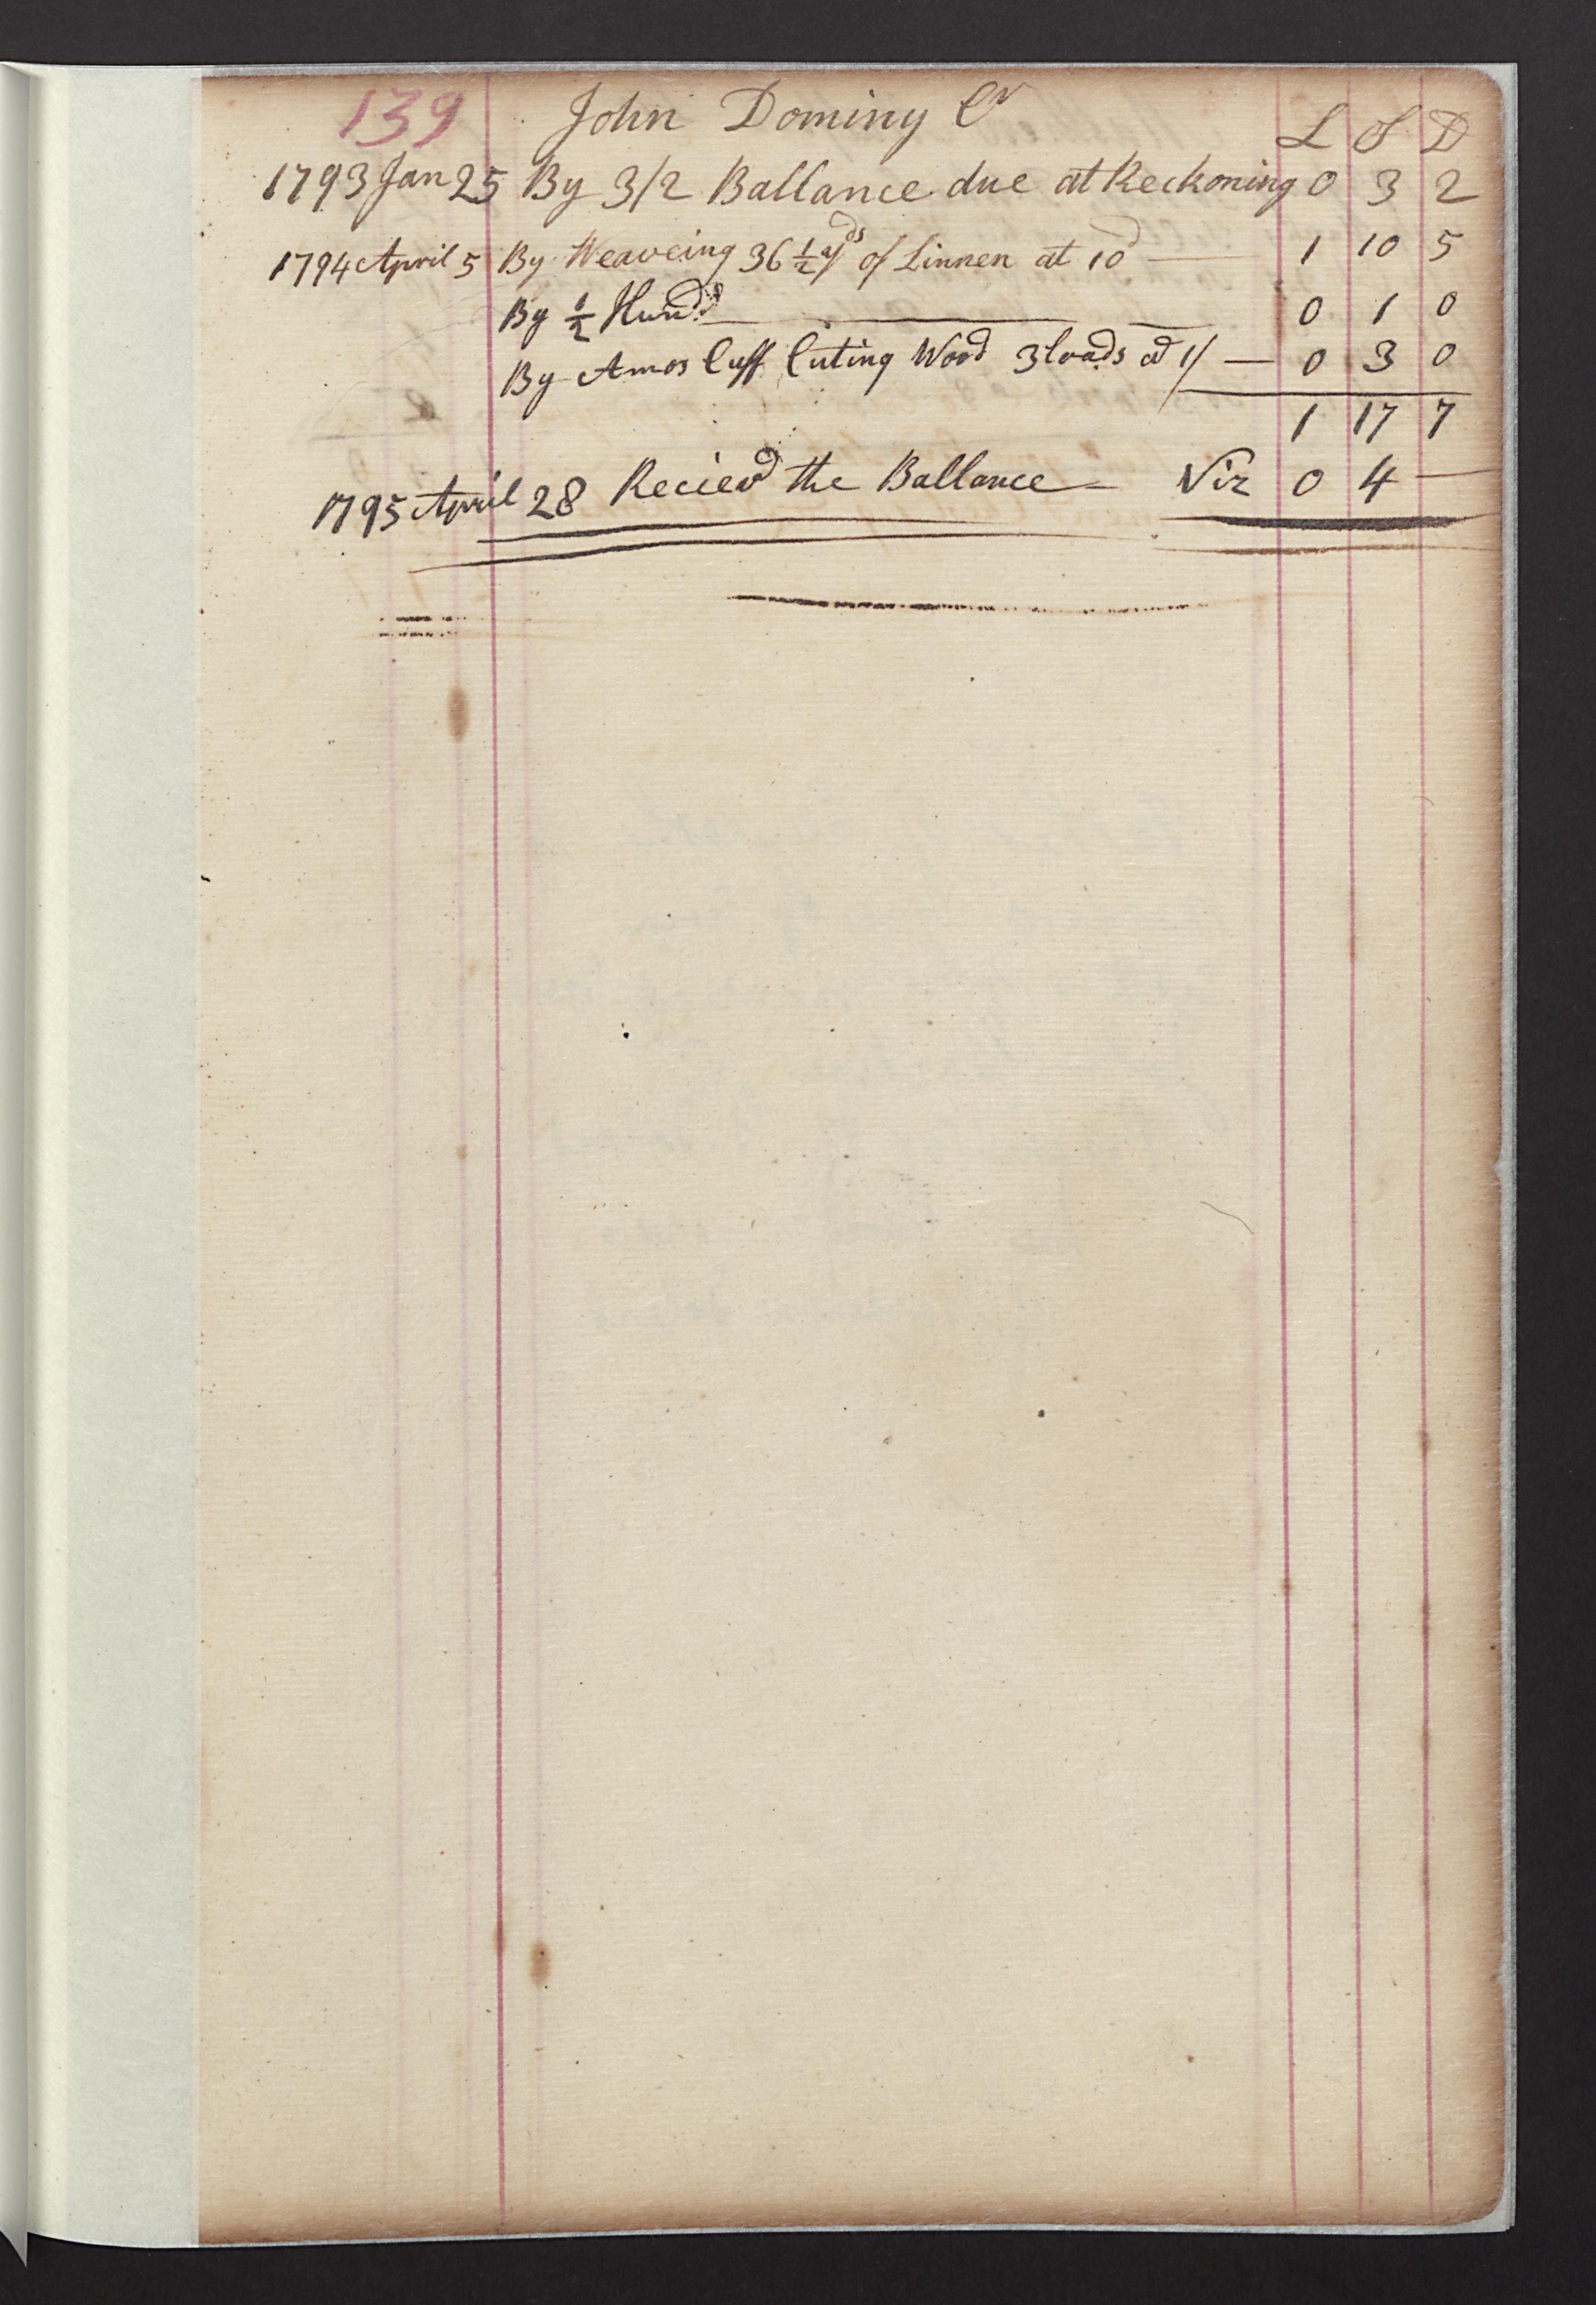 139 John Dominy Cr L S D
1793 Jan 25 By 3/2 Ballance due at Reckoning 0 3 2
1794 April 5 By Weaveing 36 1/2 yds of Linnen at 10d 1 10 5
By 1/2 Hundd 0 1 0
By Amos Cuff Cuting Wood 3 loads at 1/ — 0 3 0
1 17 7
1795 April 28 Recievd the Ballance — Viz 0 4 —